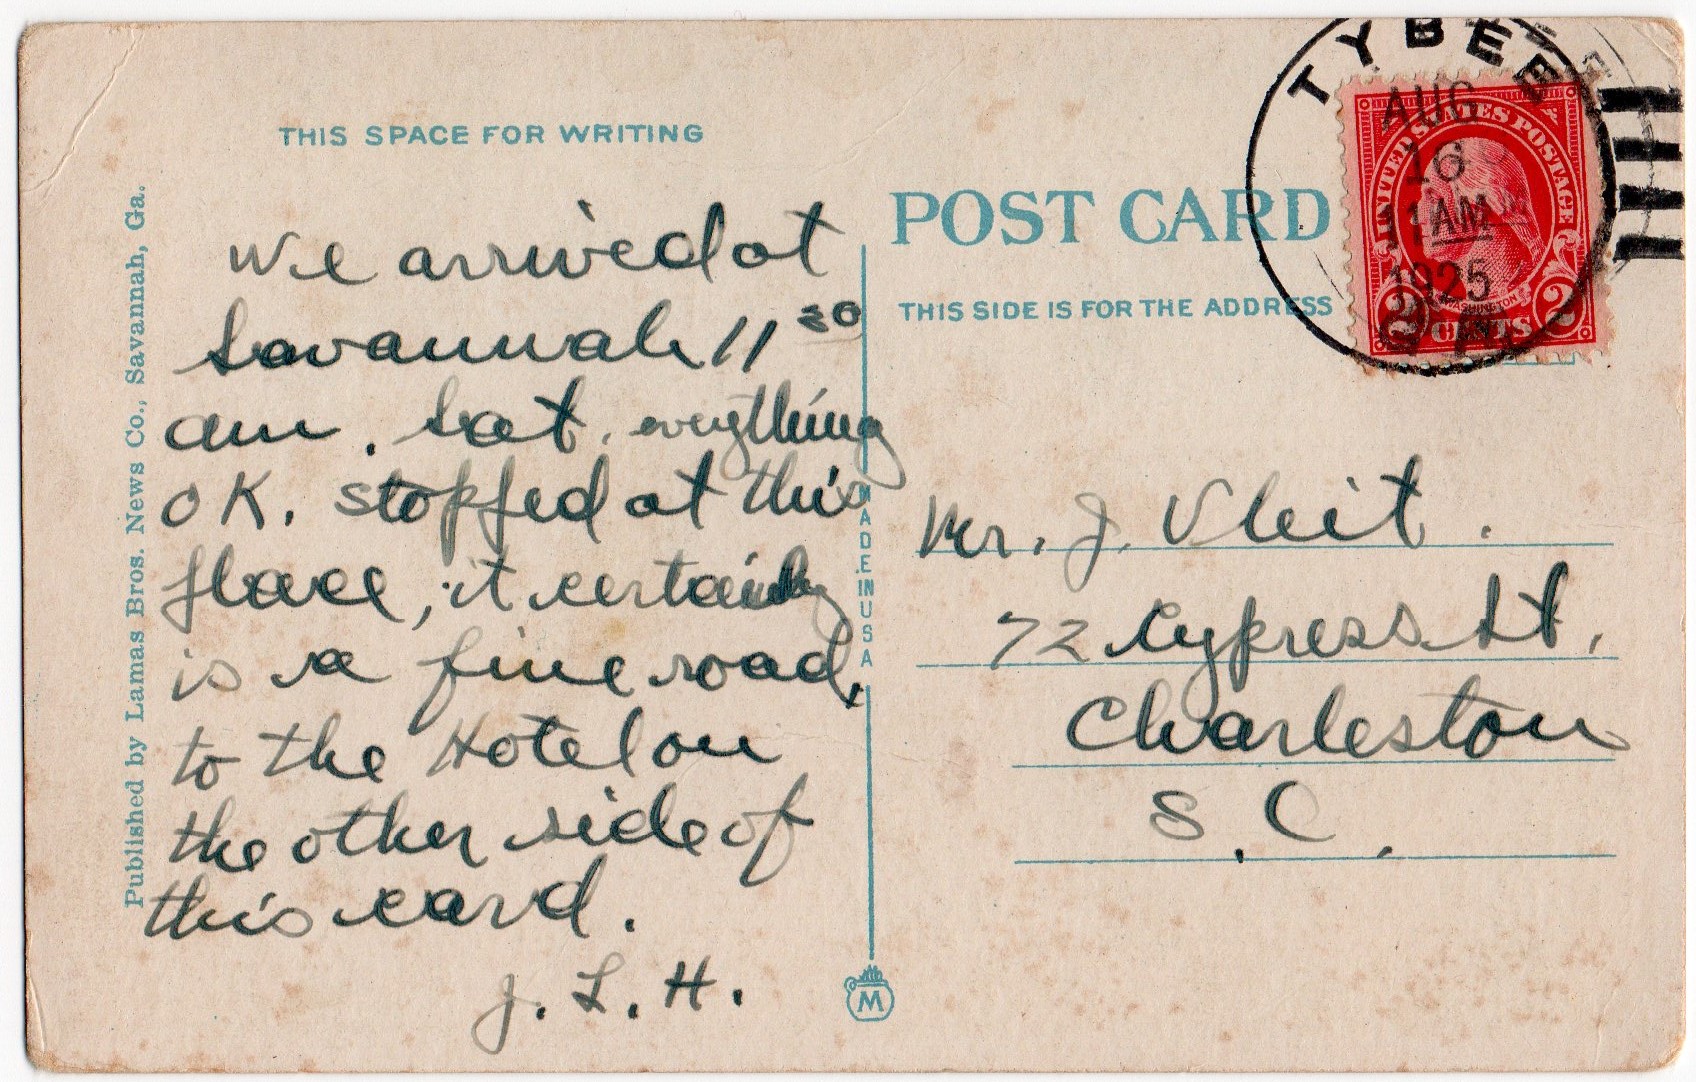 THIS SPACE FOR WRITING
We arrived at
Savannah 11 30
am. Sat, everything
OK. stopped at this
place, it certainly
is a fine road,
to the Hotel on
the other side of
this card.
J. L. H.
Published by Lamas Bros. News Co., Savannah, Ga.
MADE IN USA
M
POST CARD
THIS SIDE IS FOR THE ADDRESS
TYBEE
AUG
16
11 AM
1925
GA.
UNITED STATES POSTAGE
WASHINGTON
2 CENTS 2
Mr. J. Vleit.
72 Cypress St,
Charleston
S. C.